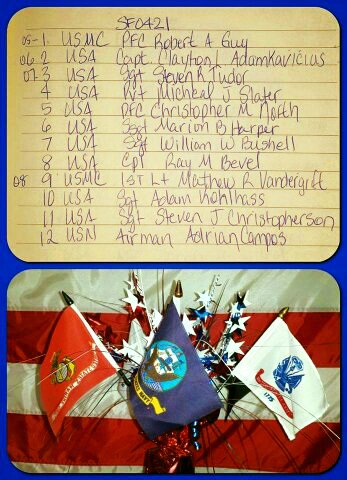 SF0421
05-1 USMC PFC Robert A Guy
06 2 USA Capt Clayton L Adamkavicius
07 3 USA Sgt Steven R Tudor
4 USA Pvt Micheal J Slater
5 USA PFC Christopher M North
6 USA Ssgt Marion B Harper
7 USA Sgt William W Bushell
8 USA Cpl Ray M Bevel
08 9 USMC 1ST Lt Mathew R Vandergrift
10 USA Sgt Adam Kohlhass
11 USA Sgt Steven J Christopherson
12 USN Airman Adrian Campos
1775